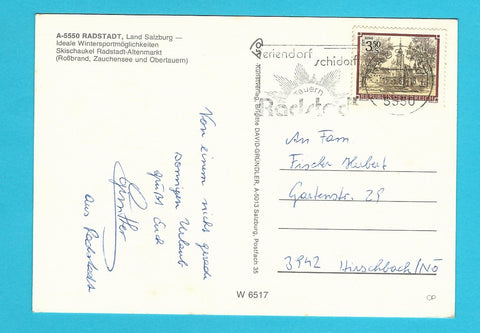 A-5550 RADSTADT, Land Salzburg —
Ideale Wintersportmöglichkeiten
Skischaukel Radstadt-Altenmarkt
(Roßbrand, Zauchensee und Obertauern)
Von einem nicht gerade
sonnigen Urlaub
grüßt Euch
Günther
aus Radstadt
Kunstverlag, Brigitte DAVID-GRÜNDLER, A-5013 Salzburg, Postfach 35
W 6517
Feriendorf
Schidorf
Tauern
Radstadt
5550
3.50
REPUBLIK ÖSTERREICH
An Fam
Fischer Hubert
Gartenstr. 29
3942 Hirschbach/NÖ